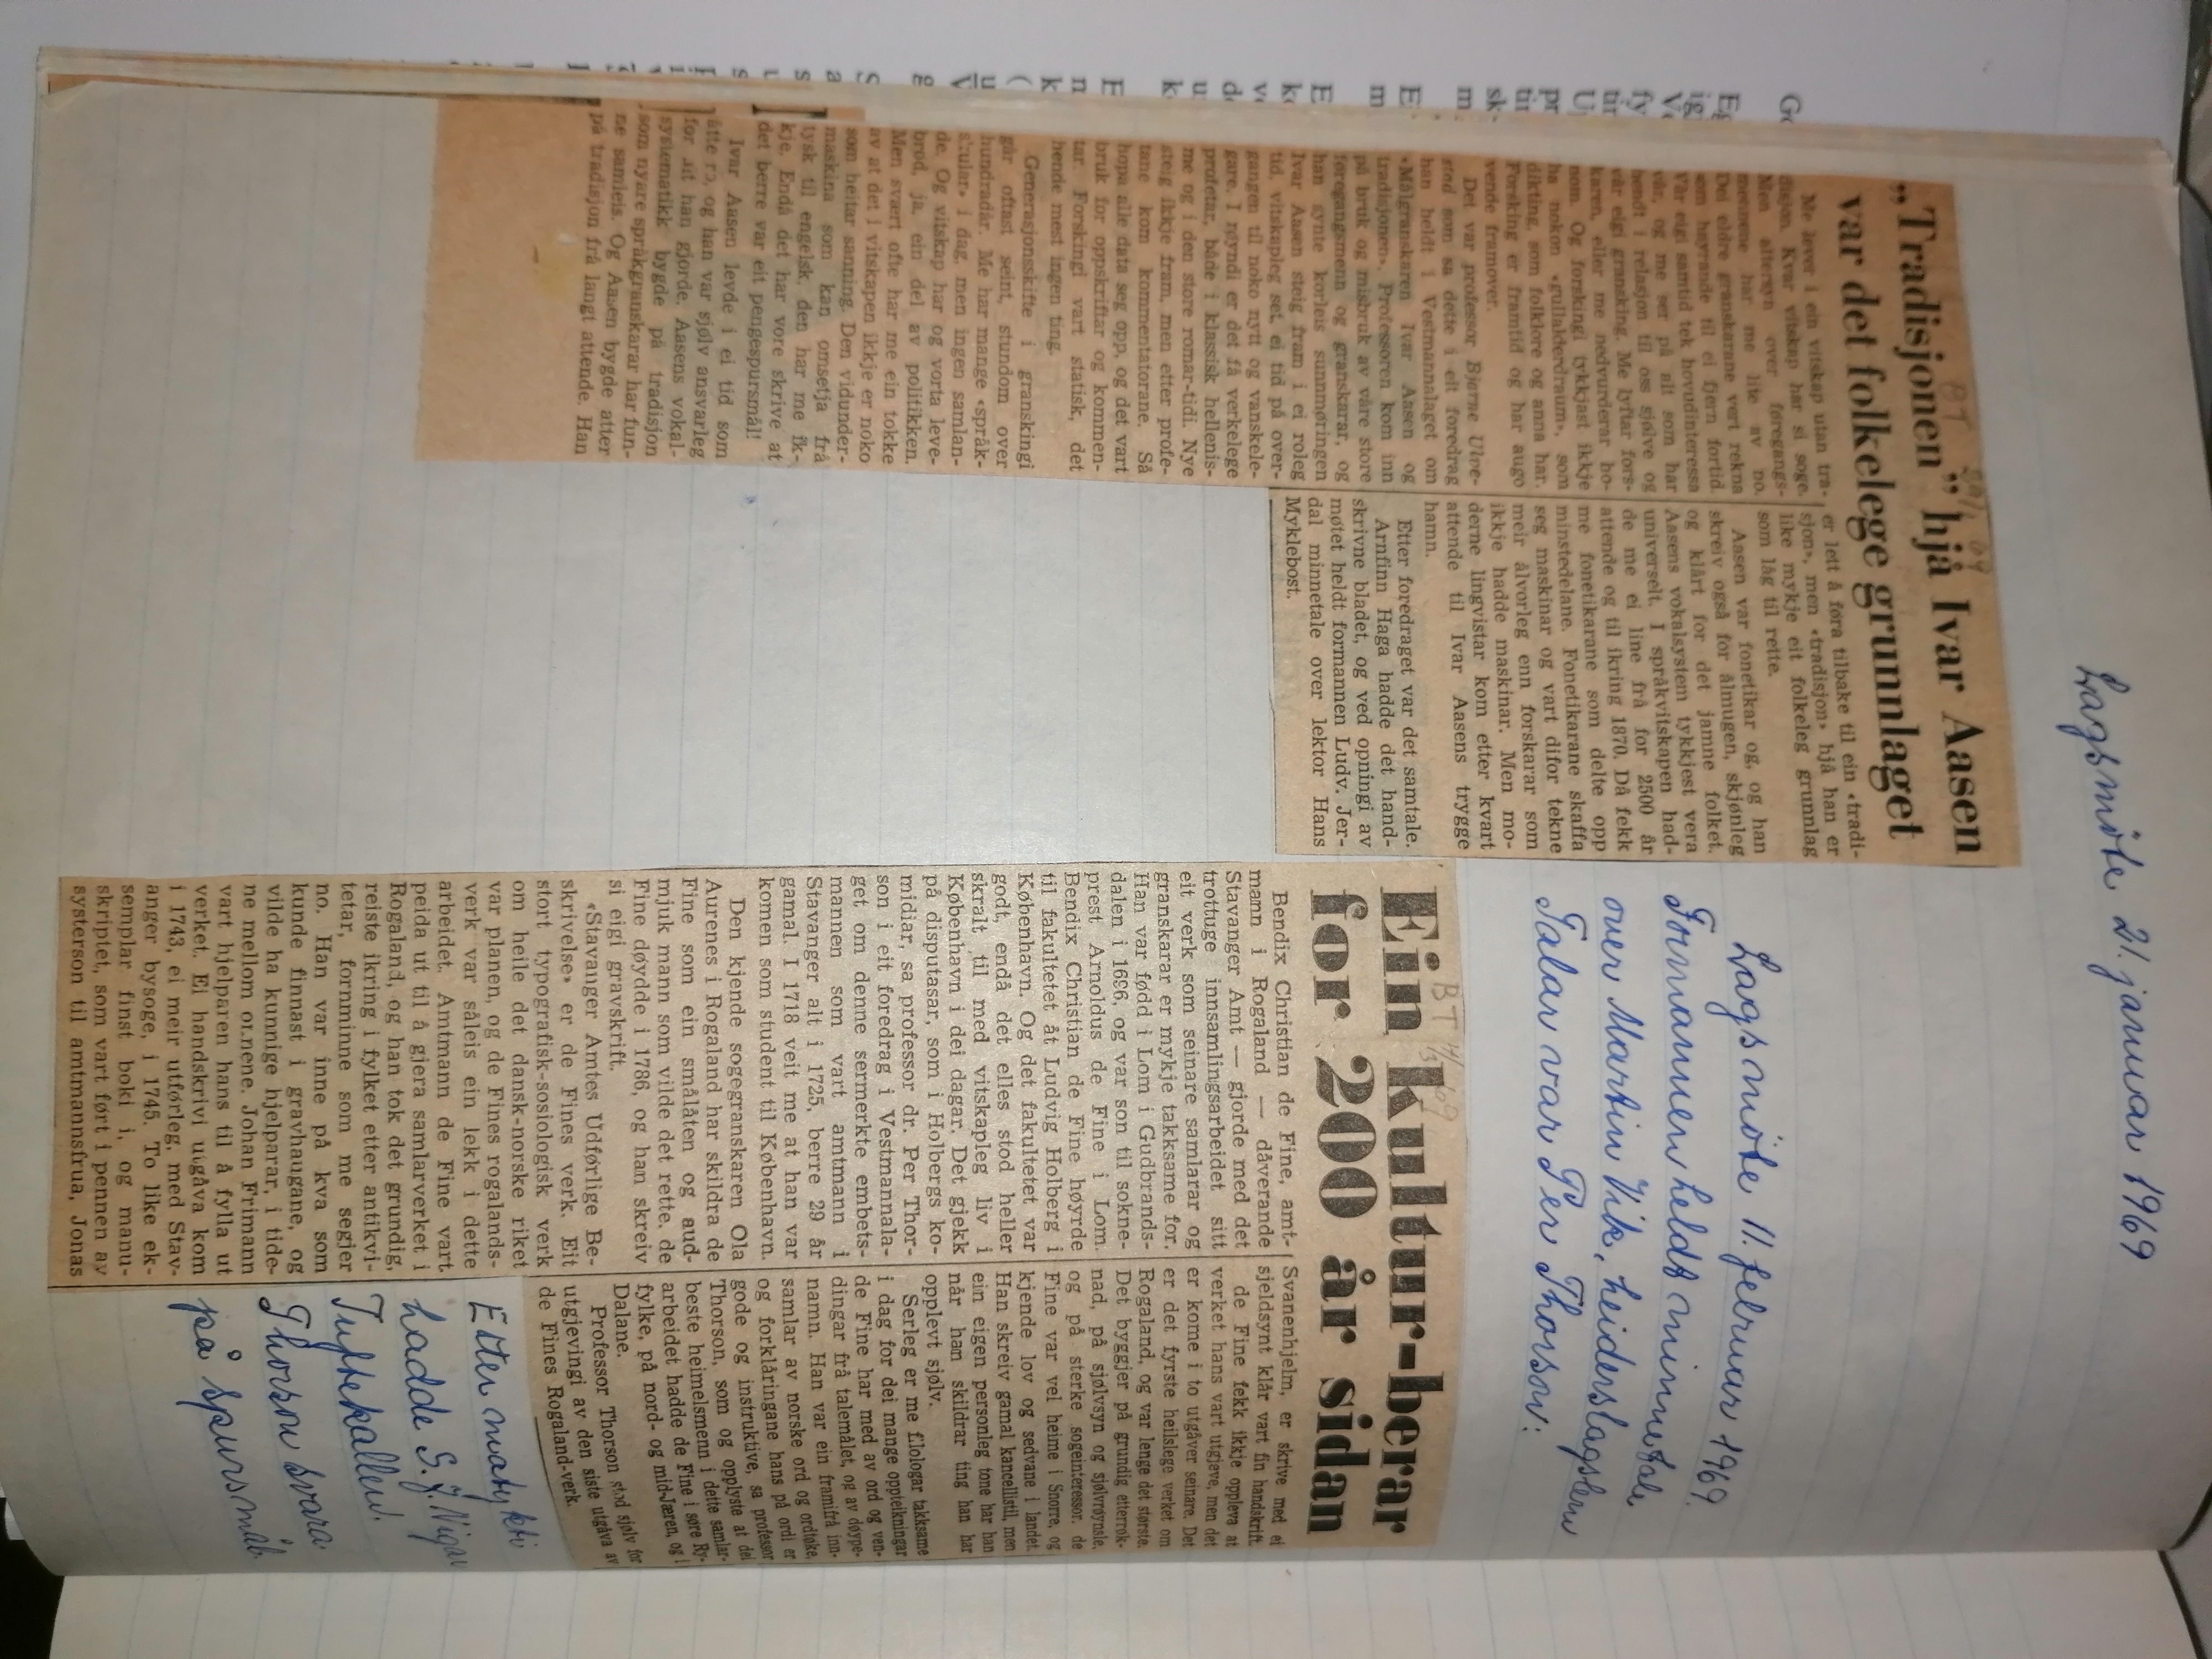 Lagsmöte 21. januar 1969
BT
„Tradisjonen” hjå Ivar Aasen
var det folkelege grunnlaget
Me lever i ein vitskap utan tra-
disjon. Kvar vitskap har si soge.
Men attersyn over føregangs-
mennene har me lite av no.
Dei eldre granskarane vert rekna
som høyrande til ei fjern fortid.
Vår eigi samtid tek hovudinteressa
vår, og me ser på alt som har
hendt i relasjon til oss sjølve og
vår eigi gransking. Me lyfter fors-
karen, eller me nedvurderar ho-
nom. Og forskingi tykkjast ikkje
ha nokon «gullalderdraum», som
dikting, som folklore og anna har.
Forsking er framtid og har augo
vende framover.
Det var professor Bjarne Ulve-
stad som sa dette i eit foredrag
han heldt i Vestmannalaget om
«Målgranskaren Ivar Aasen og
tradisjonen». Professoren kom inn
på bruk og misbruk av våre store
føregangsmenn og granskarar, og
han synte korleis sunnmøringen
Ivar Aasen steig fram i ei roleg
tid, vitskapleg set, ei tid på over-
gangen til noko nytt og vanskele-
gare. I røyndi er det få verkelege
profetar, både i klassisk hellenis-
me og i den store romar-tidi. Nye
steig ikkje fram, men etter profe-
tane kom kommentatorane. Så
hopa alle data seg opp, og det vart
bruk for oppskriftar og kommen-
tar. Forskingi vart statisk, det
hende mest ingen ting.
Generasjonsskifte i granskingi
går oftast seint, stundom over
hundradår. Me har mange «språk-
skular» i dag, men ingen samlan-
de. Og vitskap har og vorta leve-
brød, ja, ein del av politikken.
Men svært ofte har me ein tokke
av at det i vitskapen ikkje er noko
som heitar sanning. Den vidunder-
maskina som kan omsetja frå
tysk til engelsk, den har me ik-
kje. Endå det har vore skrive at
det berre var eit pengespursmål!
Ivar Aasen levde i ei tid som
åtte ro, og han var sjølv ansvarleg
for alt han gjorde. Aasens vokal-
systematikk bygde på tradisjon
som nyare språkgranskarar har fun-
ne samleis. Og Aasen bygde atter
på tradisjon frå langt attende. Han
er lett å føra tilbake til ein «tradi-
sjon», men «tradisjon» hjå han er
like mykje eit folkeleg grunnlag
som låg til rette.
Aasen var fonetikar og, og han
skreiv også for ålmugen, skjønleg
og klårt for det jamne folket.
Aasens vokalsystem tykkjest vera
universelt. I språkvitskapen had-
de me ei line frå for 2500 år
attende og til ikring 1870. Då fekk
me fonetikarane som delte opp
minstedelane. Fonetikarane skaffa
seg maskinar og vart difor tekne
meir ålvorleg enn forskarar som
ikkje hadde maskinar. Men mo-
derne lingvistar kom etter kvart
attende til Ivar Aasens trygge
hamn.
Etter foredraget var det samtale.
Arnfinn Haga hadde det hand-
skrivne bladet, og ved opningi av
møtet heldt formannen Ludv. Jer-
dal minnetale over lektor Hans
Myklebost.
Lagsmöte 11. februar 1969.
Formannen heldt minnetale
over Martin Vik, heiderslagslem
Talar var Per Thorson:
BT 14/2 69
Ein kultur-berar
for 200 år sidan
Bendix Christian de Fine, amt-
mann i Rogaland — dåverande
Stavanger Amt — gjorde med det
trottuge innsamlingsarbeidet sitt
eit verk som seinare samlarar og
granskarar er mykje takksame for.
Han var fødd i Lom i Gudbrands-
dalen i 1696, og var son til sokne-
prest Arnoldus de Fine i Lom.
Bendix Christian de Fine høyrde
til fakultetet åt Ludvig Holberg i
København. Og det fakultetet var
godt, endå det elles stod heller
skralt til med vitskapleg liv i
København i dei dagar. Det gjekk
på disputasar, som i Holbergs ko-
midiar, sa professor dr. Per Thor-
son i eit foredrag i Vestmannala-
get om denne sermerkte embets-
mannen som vart amtmann i
Stavanger alt i 1725, berre 29 år
gamal. I 1718 veit me at han var
komen som student til København.
Den kjende sogegranskaren Ola
Aurenes i Rogaland har skildra de
Fine som ein smålåten og aud-
mjuk mann som vilde det rette. de
Fine døydde i 1786, og han skreiv
si eigi gravskrift.
«Stavanger Amtes Udførlige Be-
skrivelse» er de Fines verk. Eit
stort typografisk-sosiologisk verk
om heile det dansk-norske riket
var planen, og de Fines rogalands-
verk var såleis ein lekk i dette
arbeidet. Amtmann de Fine vart
peida ut til å gjera samlarverket i
Rogaland, og han tok det grundig,
reiste ikring i fylket etter antikvi-
tetar, fornminne som me segjer
no. Han var inne på kva som
kunde finnast i gravhaugane, og
vilde ha kunnige hjelparar, i tide-
ne mellom onnene. Johan Frimann
vart hjelparen hans til å fylla ut
verket. Ei handskrivi utgåva kom
i 1743, ei meir utførleg, med Stav-
anger bysoge, i 1745. To like ek-
semplar finst boki i, og manu-
skriptet, som vart ført i pennen av
systerson til amtmannsfrua, Jonas
Svanenhjelm, er skrive med ei
sjeldsynt klår vart fin handskrift.
de Fine fekk ikkje oppleva at
verket hans vart utgjeve, men det
er kome i to utgåver seinare. Det
er det fyrste heilslege verket om
Rogaland, og var lenge det største.
Det byggjer på grundig etterrøk-
nad, på sjølvsyn og sjølvrøynsle,
og på sterke sogeinteressor. de
Fine var vel heime i Snorre, og
kjende lov og sedvane i landet.
Han skreiv gamal kancellistil, men
ein eigen personleg tone har han
når han skildrar ting han har
opplevt sjølv.
Serleg er me filologar takksame
i dag for dei mange oppteikningar
de Fine har med av ord og ven-
dingar frå talemålet, og av døype-
namn. Han var ein framifrå inn-
samlar av norske ord og ordtøke,
og forklåringane hans på ordi er
gode og instruktive, sa professor
Thorson, som og opplyste at dei
beste heimelsmenn i dette samlar-
arbeidet hadde de Fine i søre Ry-
fylke, på nord- og mid-Jæren, og i
Dalane.
Professor Thorson stod sjølv for
utgjevingi av den siste utgåva av
de Fines Rogaland-verk.
Etter matykti
hadde S. J.
Tuftekallen.
Thorson svara
på spursmål.